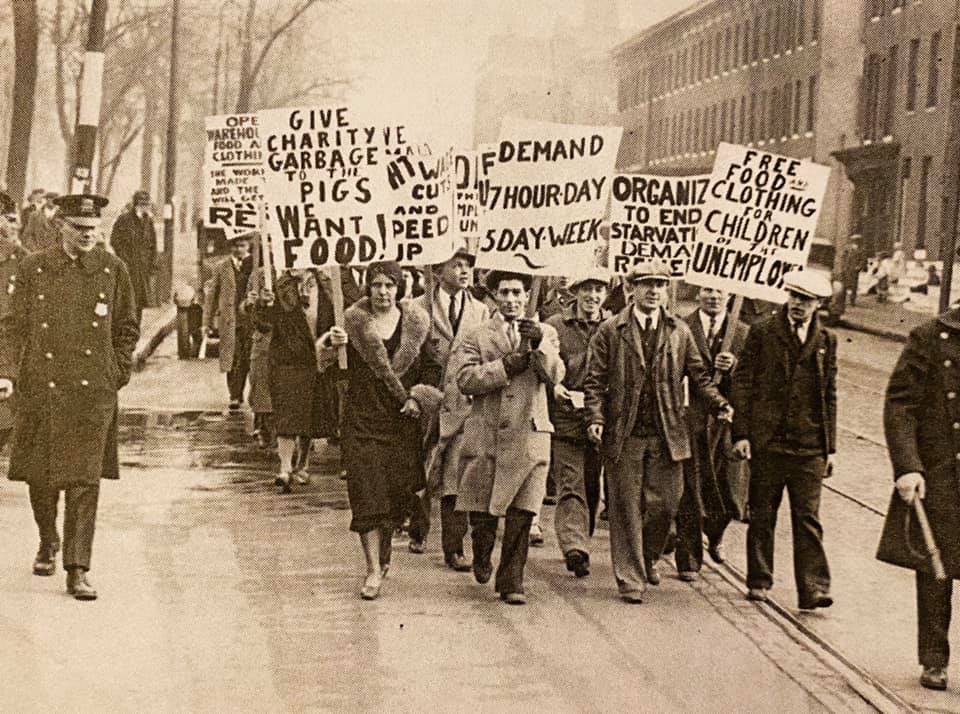 OPE
WAREHOU
FOOD A
CLOTHI
MADE
AND THE
WILL GET
RE
GIVE
CHARITY
GARBAGE
TO THE
PIGS
WE
WANT
FOOD!
CUT
AND
PEED
UP
DEMAND
7 HOUR·DAY
5 DAY·WEEK
ORGANIZ
TO END
STARVATI
DEMA
FREE
FOOD AND
CLOTHING
FOR
CHILDREN
OF THE
UNEMPLOY